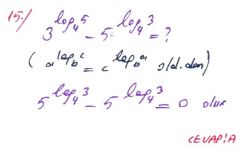 15./ 3^{log_4 5} - 5^{log_4 3} = ?
( a^{log_b c} = c^{log_b a} old.dan )
5^{log_4 3} - 5^{log_4 3} = 0 olur
CEVAP: A